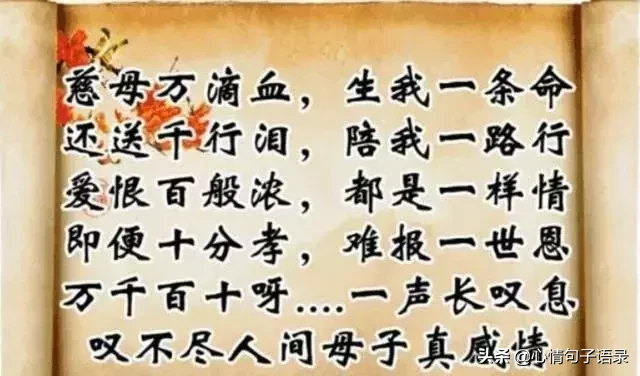 慈母万滴血，生我一条命
还送千行泪，陪我一路行
爱恨百般浓，都是一样情
即便十分孝，难报一世恩
万千百十呀....一声长叹息
叹不尽人间母子真感情
头条@心情句子语录